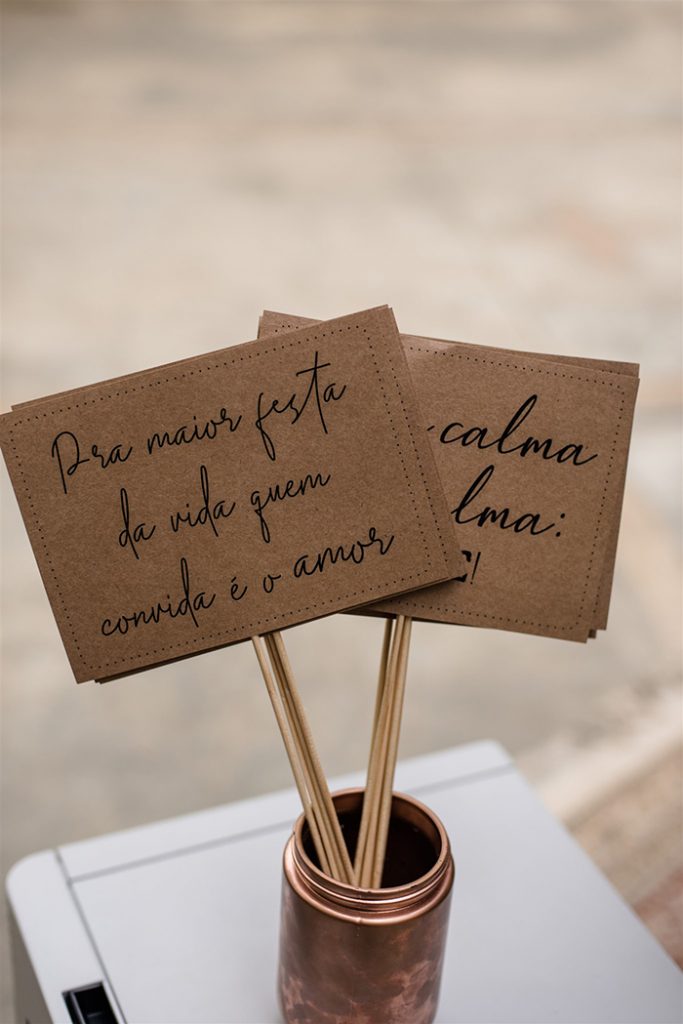 Pra maior festa
da vida quem
convida é o amor
calma
lma: